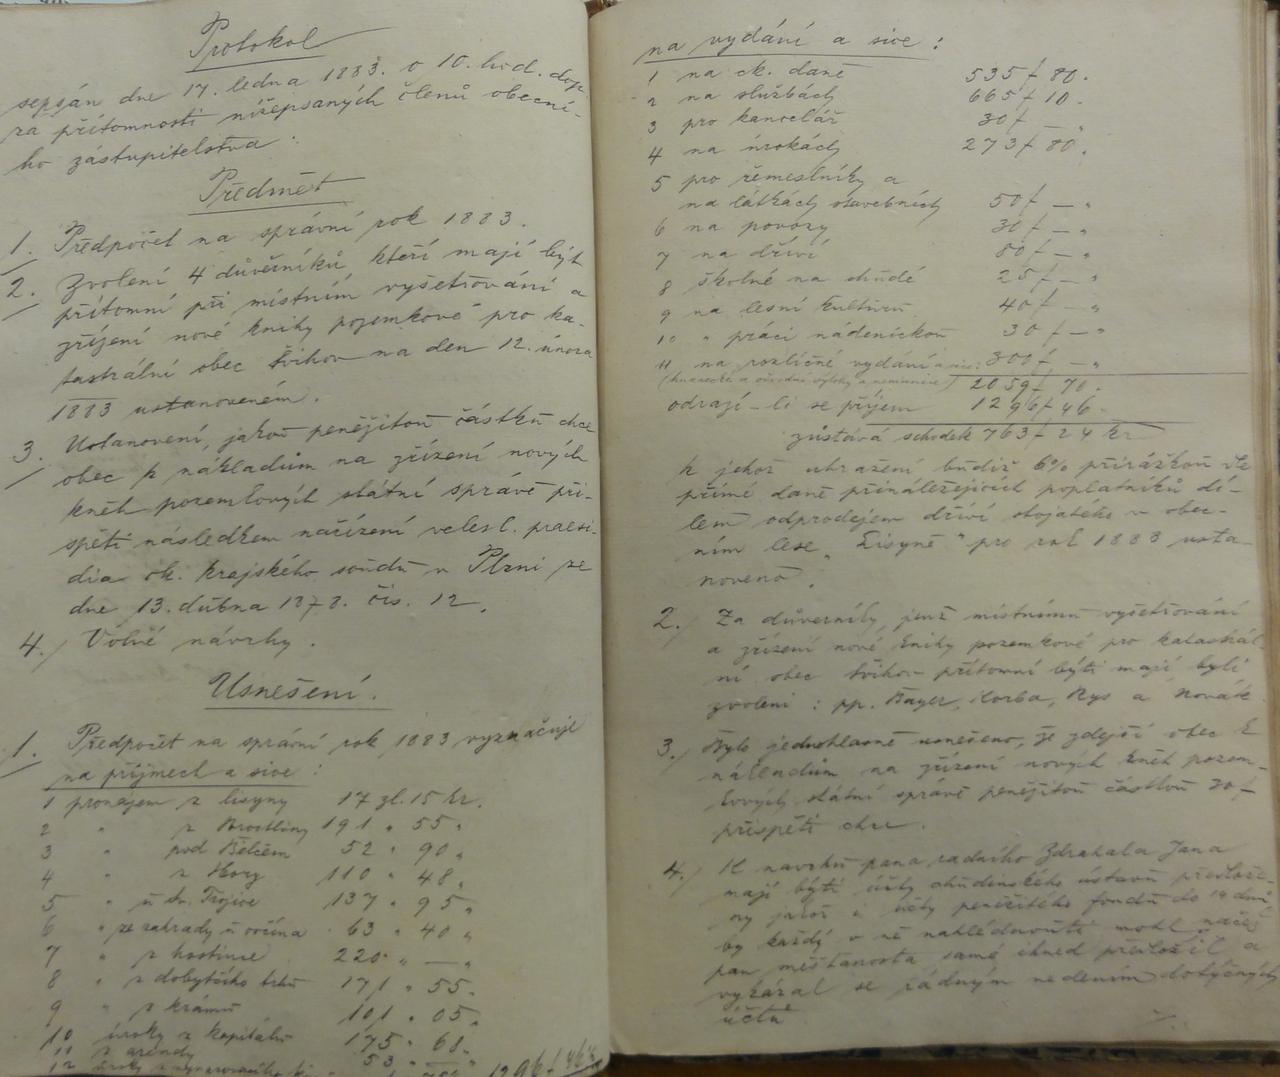 Protokol
sepsán dne 17. ledna 1883. o 10. hod. dop.
za přítomnosti nížepsaných členů obecní-
ho zástupitelstva
Předmět
1. Předpočet na správní rok 1883.
2. Zvolení 4 důvěrníků, kteří mají být
přítomni při místním vyšetřování a
zřízení nové knihy pozemkové pro ka-
tastrální obec Švihov na den 12. února
1883 ustanoveném.
3. Ustanovení, jakou peněžitou částku chce
obec k nákladům na zřízení nových
kněh pozemkových státní správě při-
spěti následkem nařízení velesl. praesi-
dia ck. krajského soudu v Plzni ze
dne 13. dubna 1878. čís. 12.
4. Volné návrhy.
Usnešení.
1. Předpočet na správní rok 1883 vyznačuje
na příjmech a sice:
1 pronájem z lisyny 17 zl. 15 kr.
2 " z 191 " 55 "
3 " pod Bělčem 52 " 90 "
4 " z Hory 110 " 48 "
5 " u sv. Trojice 137 " 95 "
6 " ze zahrady u ovčína 63 " 40 "
7 " z hostince 220 " — "
8 " z dobytčího trhu 171 " 55 "
9 " z krámů 101 " 05 "
10 úroky z kapitálu 175 " 68 "
11 z arendy 53 " — "
12 úroky 1296 f 46 kr
na vydání a sice:
1 na ck. daně 535 f 80.
2 na službách 665 f 10.
3 pro kancelář 30 f — "
4 na úrokách 273 f 80.
5 pro řemeslníky a
na látkách stavebních 50 f — "
6 na povozy 30 f — "
7 na dříví 80 f — "
8 školné na chudé 25 f — "
9 na lesní kulturu 40 f — "
10 " práci nádenickou 30 f — "
11 na rozličné vydání a sice: 300 f — "
2059 f 70.
odrazí-li se příjem 1296 f 46.
zůstává schodek 763 f 24 kr
k jehož uhražení budiž 6% přirážkou dle
přímé daně přináležejících poplatníků dí-
lem odprodejem dříví stojatého v obec-
ním lese „Lisyně“ pro rok 1883 usta-
noveno.
2. Za důverníky, jenž místnímu vyšetřování
a zřízení nové knihy pozemkové pro katastrál-
ní obec Švihov přítomni býti mají byli
zvoleni: pp. Bayer, Korba, Rys a Novák.
3. Bylo jednohlasně usnešeno, že zdejší obec k
nákladům na zřízení nových kněh pozem-
kových státní správě peněžitou částkou 20 f
přispěti chce.
4. K navrhu pana radního Zdrahala Jana
mají býti účty chudinského ústavu předlože-
ny jakož i účty peněžitého fondu do 14 dnů
by každý v ně nahlédnouti mohl načež
pan měšťanosta samé ihned předložil a
vykázal se řádným vedením dotyčných
účtů